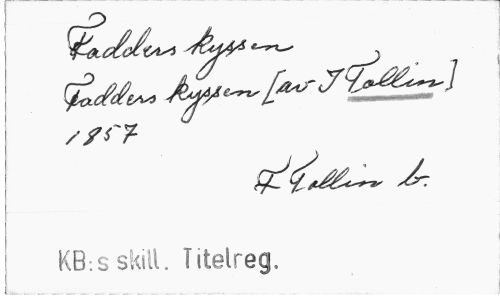 Fadders kyssen
Fadders kyssen [av F Tollin]
1857
F Tollin b.
KB:s skill. Titelreg.